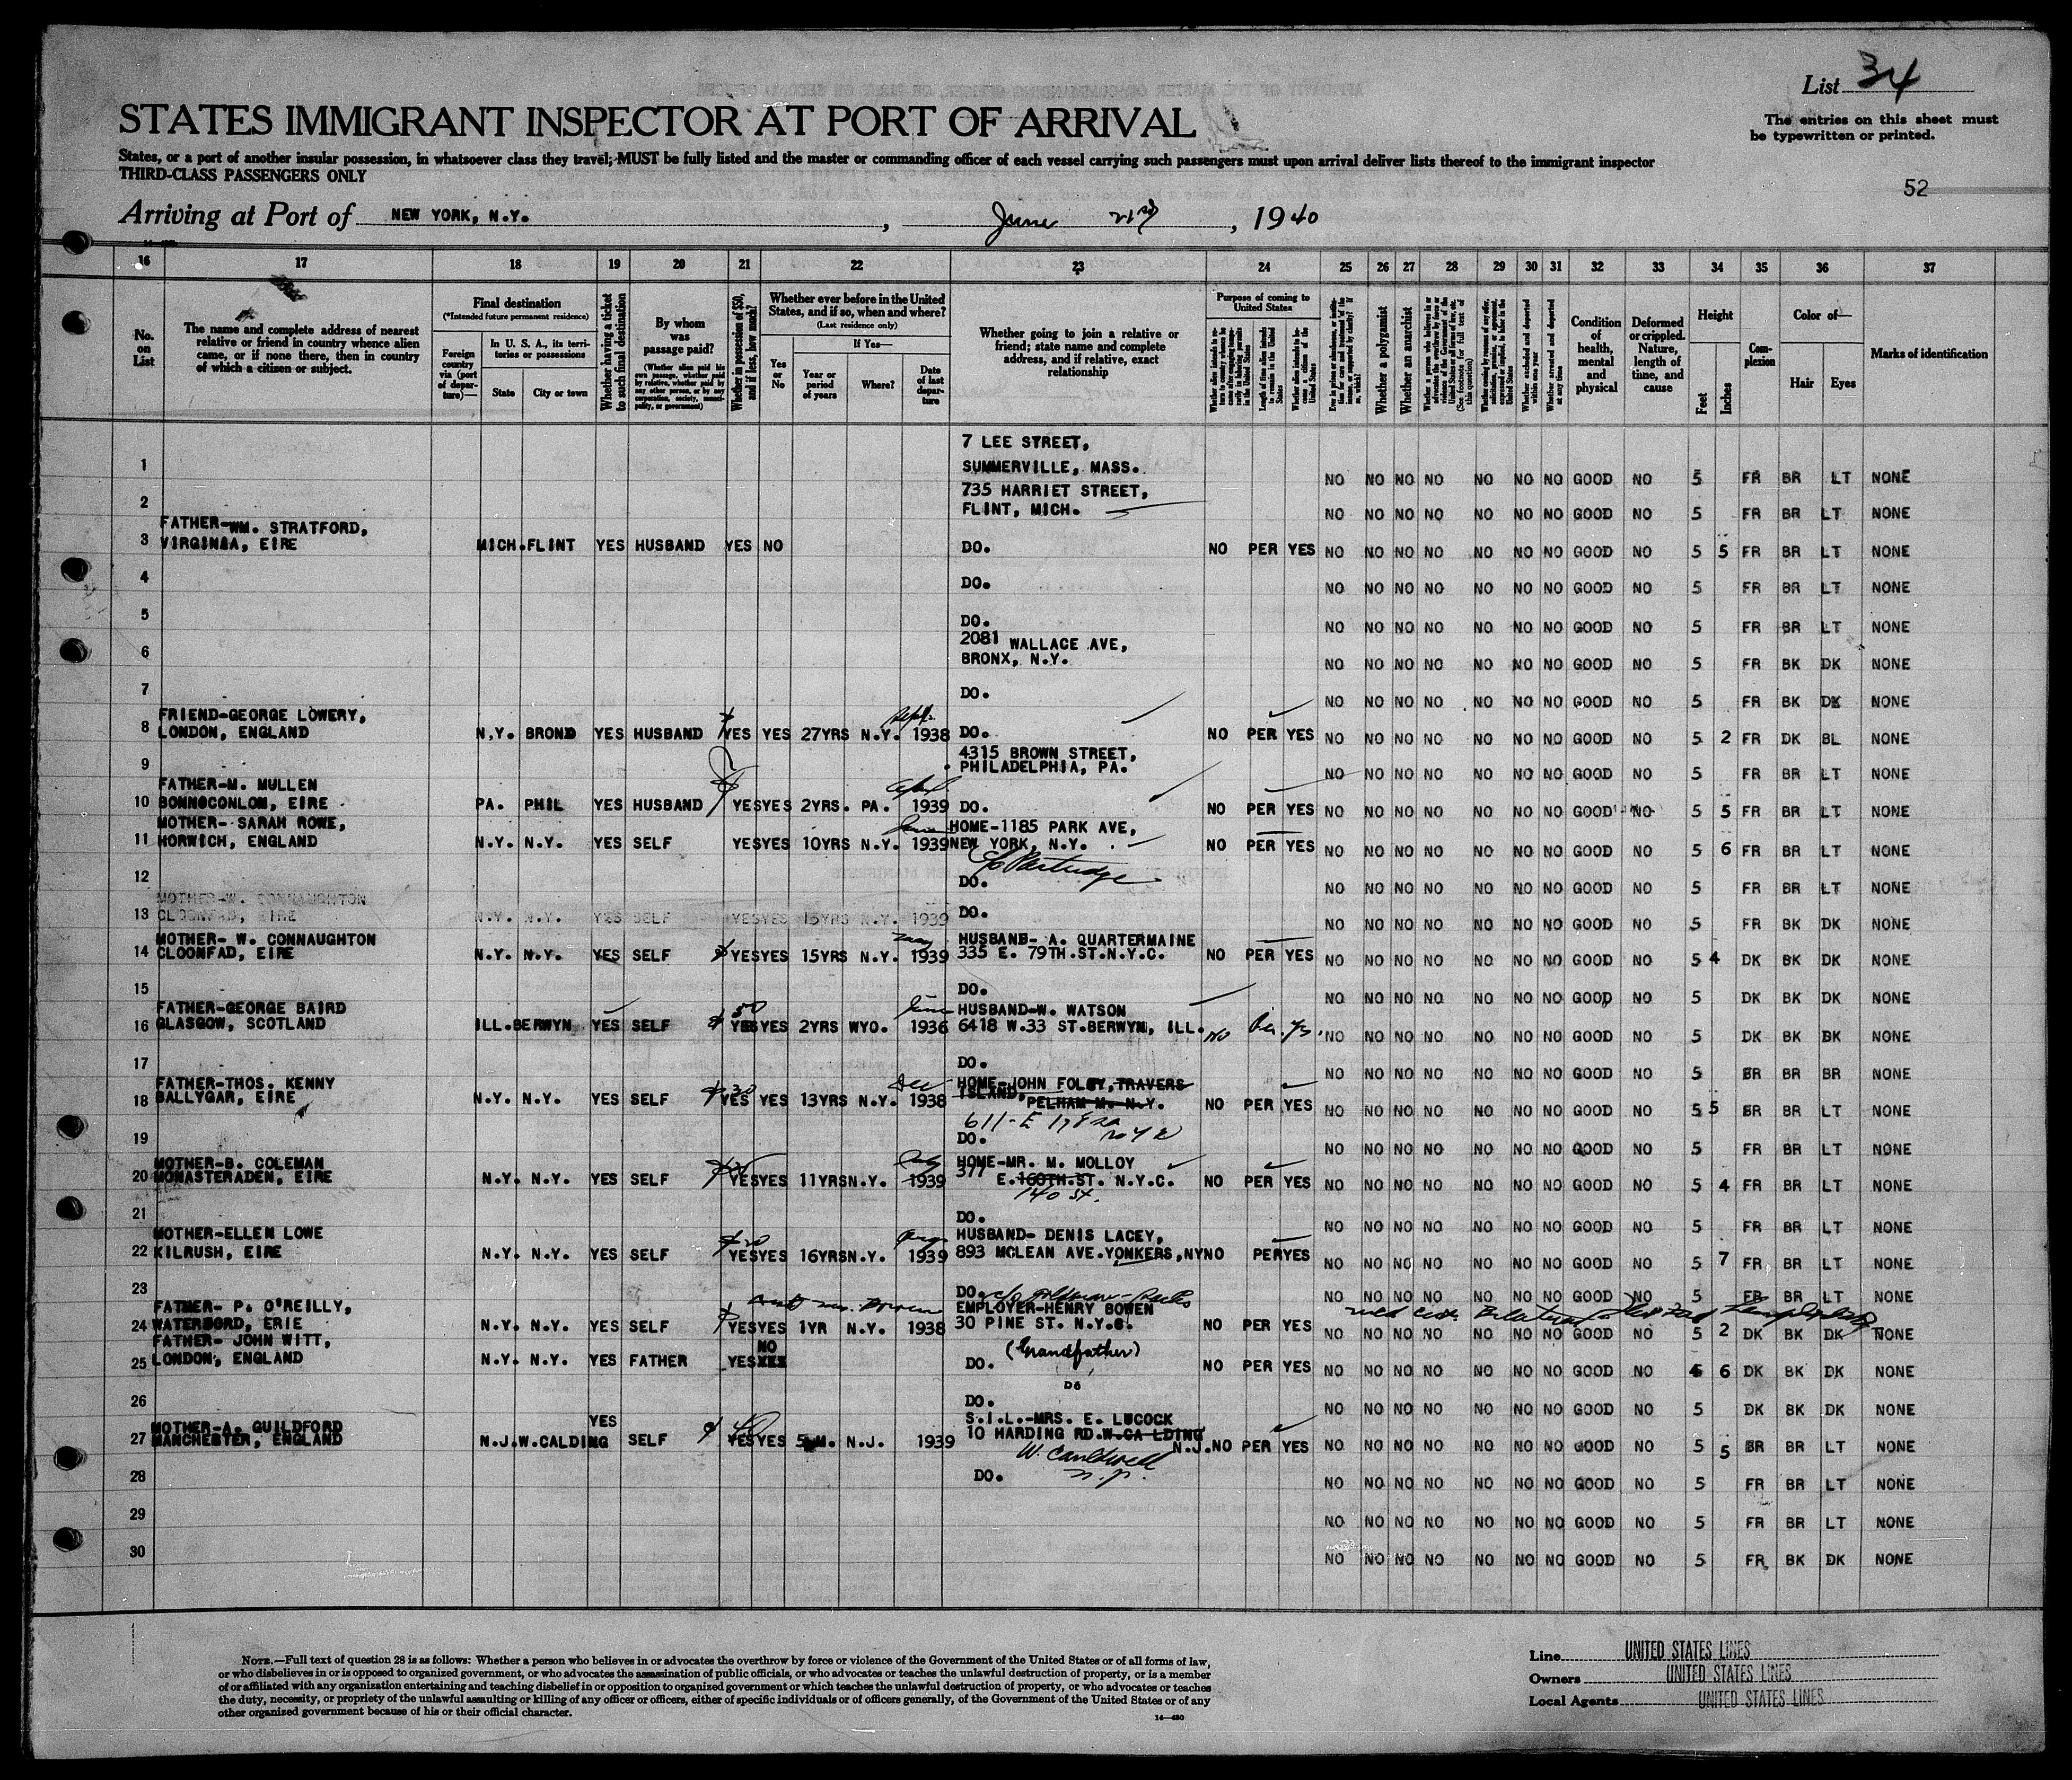 List 34
STATES IMMIGRANT INSPECTOR AT PORT OF ARRIVAL
The entries on this sheet must
be typewritten or printed.
States, or a port of another insular possession, in whatsoever class they travel, MUST be fully listed and the master or commanding officer of each vessel carrying such passengers must upon arrival deliver lists thereof to the immigrant inspector
THIRD-CLASS PASSENGERS ONLY
52
Arriving at Port of NEW YORK, N.Y. , June , 1940
16 17 18 19 20 21 22 23 24 25 26 27 28 29 30 31 32 33 34 35 36 37
No. on List
The name and complete address of nearest relative or friend in country whence alien came, or if none there, then in country of which a citizen or subject.
Final destination
(*Intended future permanent residence)
Foreign country via (port of departure)—
In U. S. A., its territories or possessions
State
City or town
Whether having a ticket to such final destination
By whom was passage paid?
(Whether alien paid his own passage, whether paid by relative, whether paid by any other person, or by any corporation, society, municipality, or government)
Whether in possession of $50, and if less, how much?
Whether ever before in the United States, and if so, when and where?
(Last residence only)
Yes or No
If Yes—
Year or period of years
Where?
Date of last departure
Whether going to join a relative or friend; state name and complete address, and if relative, exact relationship
Purpose of coming to United States
Whether a polygamist
Whether an anarchist
Condition of health, mental and physical
Deformed or crippled. Nature, length of time, and cause
Height
Feet
Inches
Complexion
Color of—
Hair
Eyes
Marks of identification
7 LEE STREET,
1 SUMMERVILLE, MASS. NO NO NO NO NO NO NO GOOD NO 5 FR BR LT NONE
735 HARRIET STREET,
2 FLINT, MICH. NO NO NO NO NO NO NO GOOD NO 5 FR BR LT NONE
FATHER-WM. STRATFORD,
3 VIRGINIA, EIRE MICH. FLINT YES HUSBAND YES NO DO. NO PER YES NO NO NO NO NO NO NO GOOD NO 5 5 FR BR LT NONE
4 DO. NO NO NO NO NO NO NO GOOD NO 5 FR BR LT NONE
5 DO. NO NO NO NO NO NO NO GOOD NO 5 FR BR LT NONE
2081 WALLACE AVE,
6 BRONX, N.Y. NO NO NO NO NO NO NO GOOD NO 5 FR BK DK NONE
7 DO. NO NO NO NO NO NO NO GOOD NO 5 FR BK DK NONE
FRIEND-GEORGE LOWERY, Sept.
8 LONDON, ENGLAND N.Y. BROND YES HUSBAND YES YES 27YRS N.Y. 1938 DO. NO PER YES NO NO NO NO NO NO NO GOOD NO 5 2 FR DK BL NONE
4315 BROWN STREET,
9 PHILADELPHIA, PA. NO NO NO NO NO NO NO GOOD NO 5 FR BR LT NONE
FATHER-M. MULLEN
10 BONNOCONLON, EIRE PA. PHIL YES HUSBAND YES YES 2YRS. PA. 1939 DO. NO PER YES NO NO NO NO NO NO NO GOOD NO 5 5 FR BR LT NONE
MOTHER- SARAH ROWE, June HOME-1185 PARK AVE,
11 HORWICH, ENGLAND N.Y. N.Y. YES SELF YES YES 10YRS N.Y. 1939 NEW YORK, N.Y. NO PER YES NO NO NO NO NO NO NO GOOD NO 5 6 FR BR LT NONE
c/o Partridge
12 DO. NO NO NO NO NO NO NO GOOD NO 5 FR BR LT NONE
MOTHER-W. CONNAUGHTON
13 CLOONFAD, EIRE N.Y. N.Y. YES SELF YES YES 15YRS N.Y. 1939 DO. NO NO NO NO NO NO NO GOOD NO 5 FR BK DK NONE
MOTHER- W. CONNAUGHTON May HUSBAND- A. QUARTERMAINE
14 CLOONFAD, EIRE N.Y. N.Y. YES SELF YES YES 15YRS N.Y. 1939 335 E. 79TH.ST.N.Y.C. NO PER YES NO NO NO NO NO NO NO GOOD NO 5 4 DK BK DK NONE
15 DO. NO NO NO NO NO NO NO GOOD NO 5 DK BK DK NONE
FATHER-GEORGE BAIRD 50 June HUSBAND-W. WATSON
16 GLASGOW, SCOTLAND ILL. BERWYN YES SELF YES YES 2YRS WYO. 1936 6418 W.33 ST.BERWYN, ILL. No Per. Ys. NO NO NO NO NO NO NO GOOD NO 5 DK BK BK NONE
17 DO. NO NO NO NO NO NO NO GOOD NO 5 BR BR BR NONE
FATHER-THOS. KENNY $30 Dec HOME-JOHN FOLEY, TRAVERS
ISLAND, PELHAM M. N.Y.
18 BALLYGAR, EIRE N.Y. N.Y. YES SELF YES YES 13YRS N.Y. 1938 NO PER YES NO NO NO NO NO NO NO GOOD NO 5 5 BR BR LT NONE
611-E 178
19 DO. NO NO NO NO NO NO NO GOOD NO 5 FR BR LT NONE
MOTHER-B. COLEMAN July HOME-MR. M. MOLLOY
20 MONASTERADEN, EIRE N.Y. N.Y. YES SELF YES YES 11YRS N.Y. 1939 377 E. 160TH.ST. N.Y.C. NO PER YES NO NO NO NO NO NO NO GOOD NO 5 4 FR BR LT NONE
140 St.
21 DO. NO NO NO NO NO NO NO GOOD NO 5 FR BR LT NONE
MOTHER-ELLEN LOWE Aug HUSBAND- DENIS LACEY,
22 KILRUSH, EIRE N.Y. N.Y. YES SELF YES YES 16YRS N.Y. 1939 893 MCLEAN AVE.YONKERS,NY NO PER YES NO NO NO NO NO NO NO GOOD NO 5 7 FR BR LT NONE
23 DO. NO NO NO NO NO NO NO GOOD NO 5 FR BR LT NONE
FATHER- P. O'REILLY, EMPLOYER-HENRY BOWEN
24 WATERBORD, ERIE N.Y. N.Y. YES SELF YES YES 1YR N.Y. 1938 30 PINE ST. N.Y.C. NO PER YES NO NO NO NO NO NO NO GOOD NO 5 2 DK BK DK NONE
FATHER- JOHN WITT, NO (Grandfather)
25 LONDON, ENGLAND N.Y. N.Y. YES FATHER YES DO. NO PER YES NO NO NO NO NO NO NO GOOD NO 6 DK BK DK NONE
DO
26 DO. NO NO NO NO NO NO NO GOOD NO 5 DK BK DK NONE
MOTHER-A. GUILDFORD YES S.I.L.-MRS. E. LUCOCK
27 MANCHESTER, ENGLAND N.J. W.CALDING SELF YES YES 5 M. N.J. 1939 10 HARDING RD.W.CALDING N.J. NO PER YES NO NO NO NO NO NO NO GOOD NO 5 5 BR BR LT NONE
W. Cauldwell
N.J.
28 DO. NO NO NO NO NO NO NO GOOD NO 5 FR BR LT NONE
29 NO NO NO NO NO NO NO GOOD NO 5 FR BR LT NONE
30 NO NO NO NO NO NO NO GOOD NO 5 FR BK DK NONE
NOTE.—Full text of question 28 is as follows: Whether a person who believes in or advocates the overthrow by force or violence of the Government of the United States or of all forms of law,
or who disbelieves in or is opposed to organized government, or who advocates the assassination of public officials, or who advocates or teaches the unlawful destruction of property, or is a member
of or affiliated with any organization entertaining and teaching disbelief in or opposition to organized government or which teaches the unlawful destruction of property, or who advocates or teaches
the duty, necessity, or propriety of the unlawful assaulting or killing of any officer or officers, either of specific individuals or of officers generally, of the Government of the United States or of any
other organized government because of his or their official character.
14—430
Line UNITED STATES LINES
Owners UNITED STATES LINES
Local Agents UNITED STATES LINES